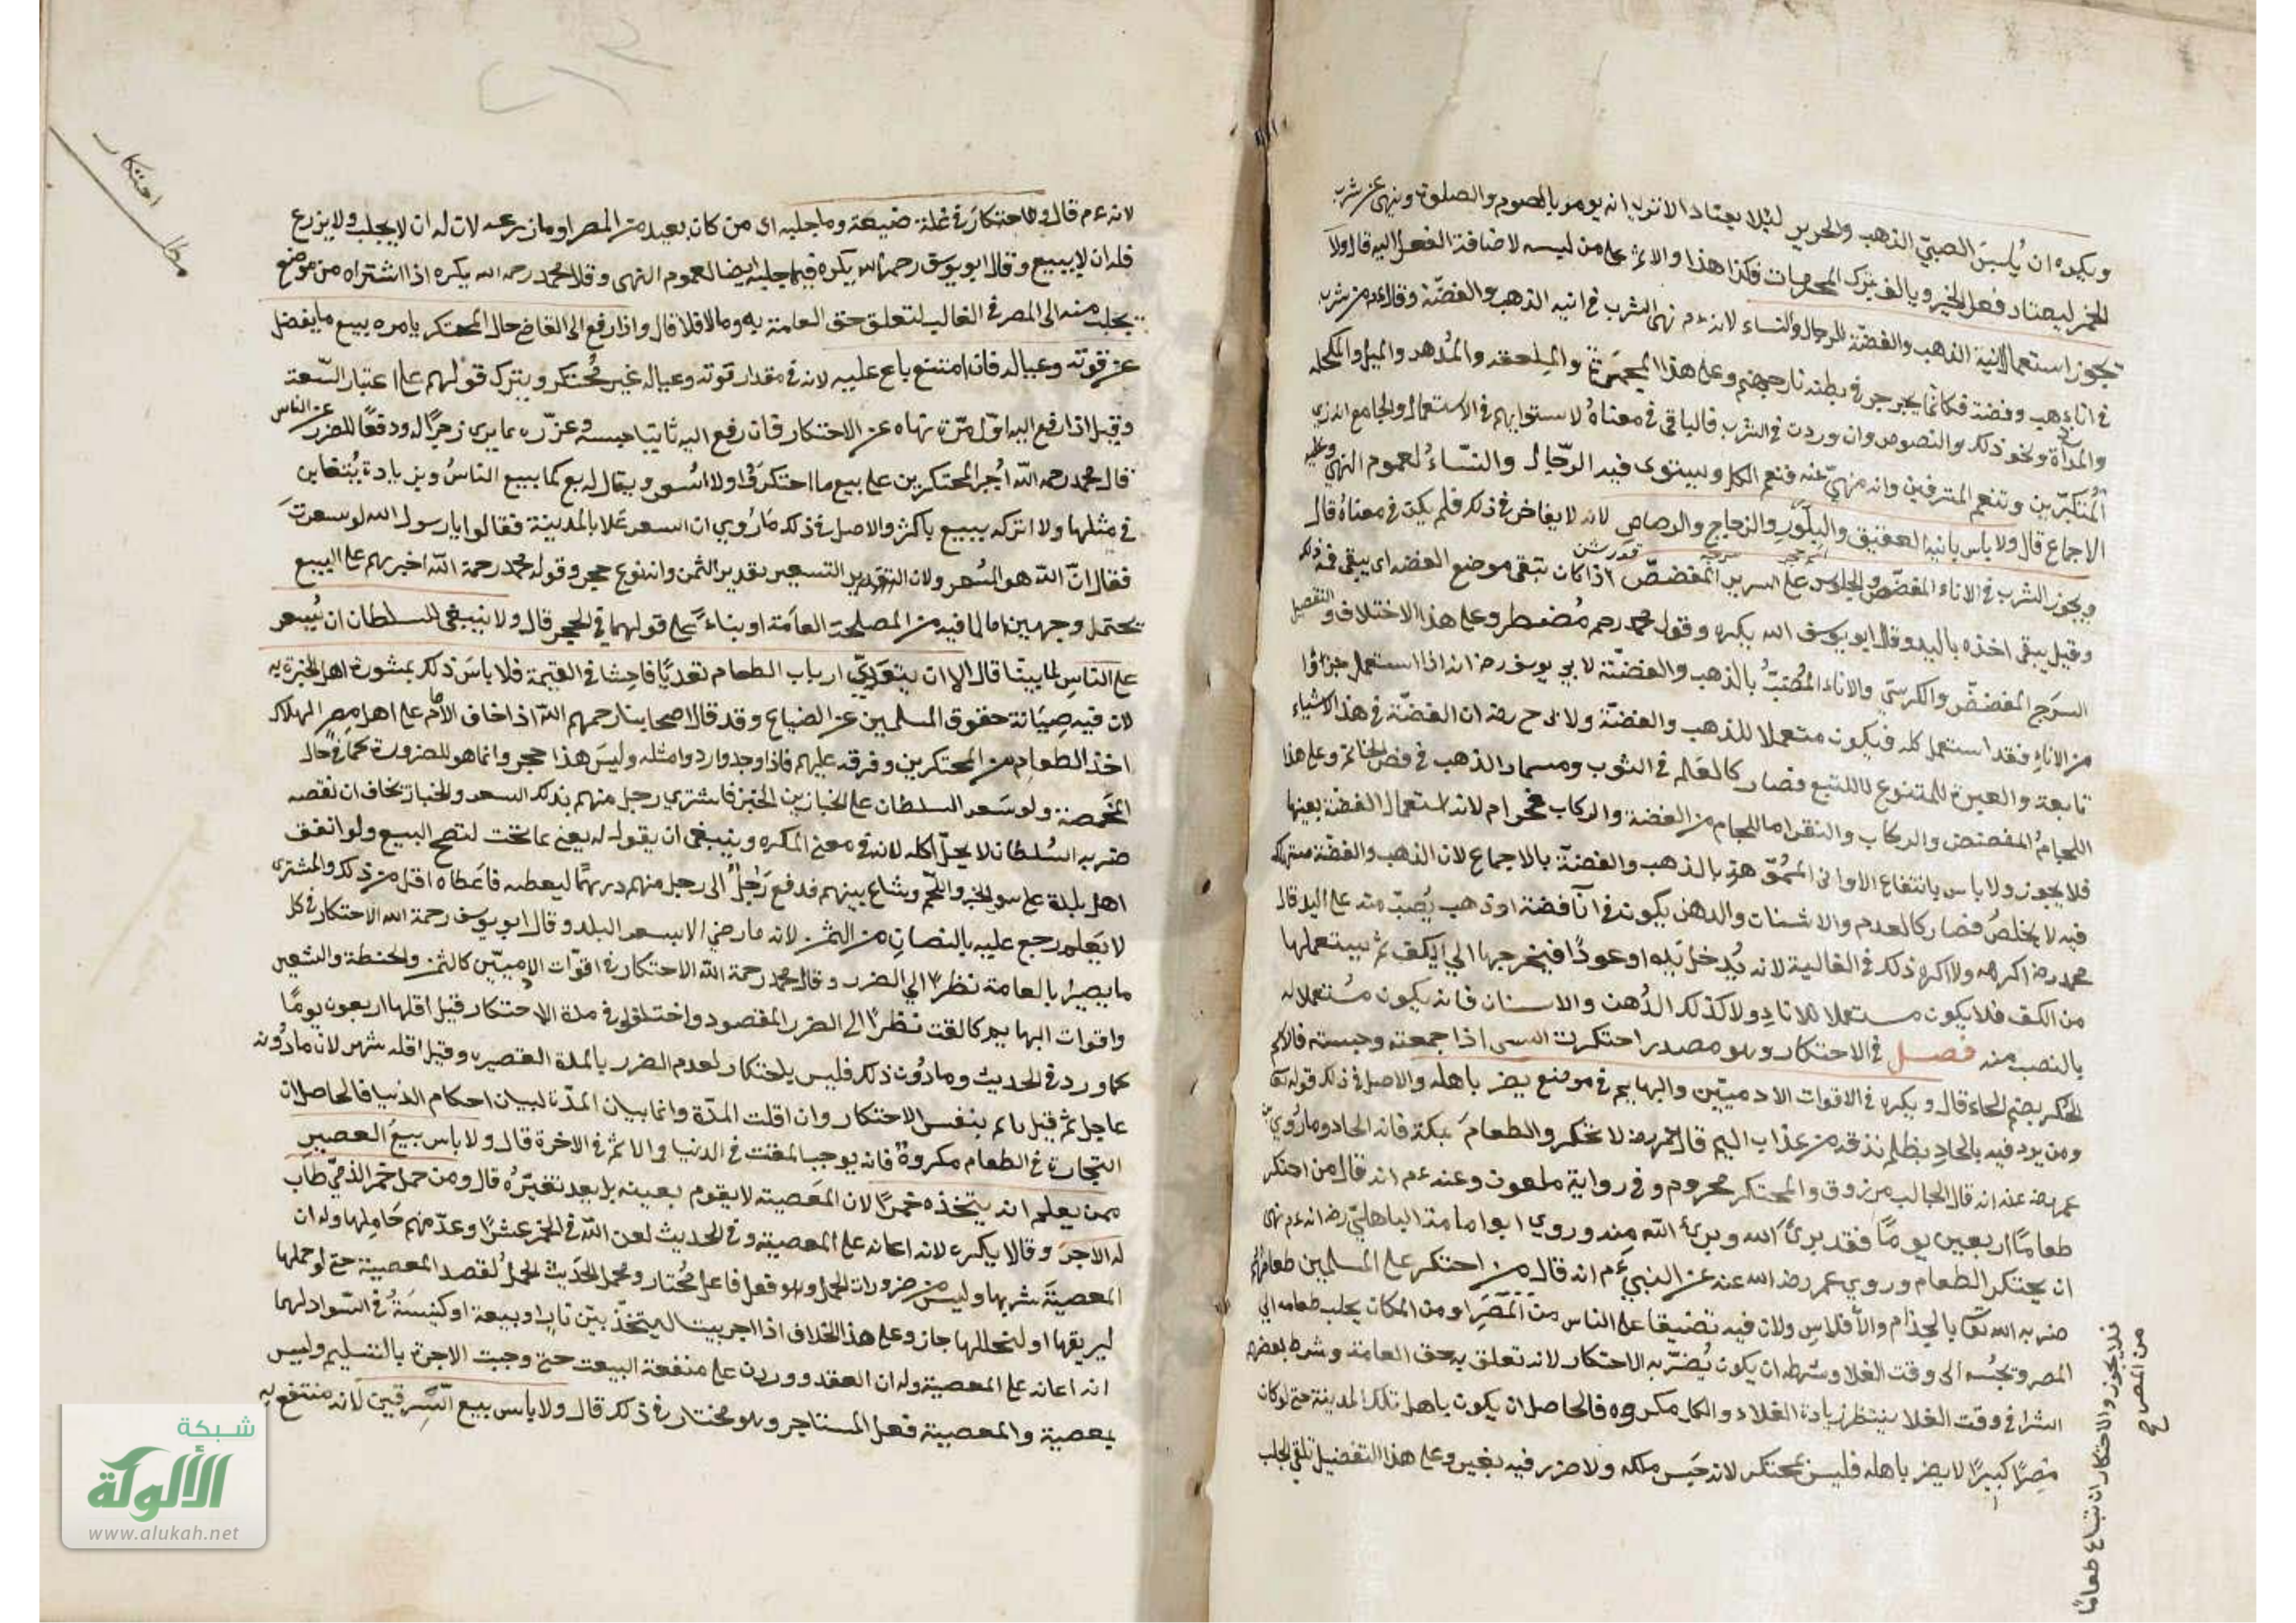 ويكره ان يُلبسَ الصبيّ الذهب والحرير لئلا يعتاد الا ترى انه يومر بالصوم والصلوة وينهى عن شرب
الخمر ليعتاد فعل الخير ويالف ترك المحرمات فكذا هذا والاثم على من لبسه لاضافة الفعل اليه قال ولا
تجوز استعمال آنية الذهب والفضّة للرجال والنساء لانه ءم نهى الشرب في انيه الذهب والفضّة وقال ءم من شرب
في اناء ذهب وفضة فكانما يجرجر في بطنه نار جهنم وعلى هذا المجمَرة والملعقه والمُدهن والميل والمكحله
والمرأة ونحو ذلك والنصوص وان وردت في الشرب فالباقي في معناهُ لاستوايهم في الاستعمال والجامع انه زي
المُتكبّرين وتنعم المترفين وانه منهيّ عنه فنعم الكل ويستوى فيه الرّجال والنسّاءُ لعموم النهي وعليه
الاجماع قال ولا باس بانية العقيق والبِلَّور والزجاج والرصاص لانه لا يفاخر في ذلك فلم يكن في معناهُ قال
ويجوز الشرب في الاناء المفضّض والجلوس على السرير المفضضّ اذا كان يتقى موضع الفضه اى يبقى فمه ذلك
وقيل يبقى اخذه باليد وقال ابو يوسف الله يكره وقول محمد رحم مُضطر وعلى هذا الاختلاف والتفصيل
السَرج المفضضّ والكرسيّ والاناء المُضبّبُ بالذهب والفضّة لابي يوسف رضه انه اذا استعمل جزاؤا
من الاناءِ فقد استعمل كله فيكون متعملا للذهب والفضّة ولابى ح رضه ان الفضّة في هذا الاشياء
تابعة والعبرة للمتنوع لا للتبع فصار كالعَلم في الثوب ومسمار الذهب في فصّ الخاتم وعلى هذا
اللجامُ المفضض والركاب والنفر اما اللجام من الفضة والركاب فحرام لانه استعمال الفضة بعينها
فلا يجوز ولا باس بانتفاع الاوانى المُمَوّهة بالذهب والفضّة بالاجماع لان الذهب والفضّة مستهلك
فيه لا يخلصُ فصار كالعدم والاشنات والدهن يكون في آنآ فضة او ذهب يُصَبّ منه على اليد قال
محمد رضه اكرهه ولا اكره ذلك في الغالية لانه يُدخل يده او عودًا فيخرجها الى الكف ثم يستعملها
من الكف فلا يكون مستعملا للاناء ولا كذلك الدُهن والاسنان فانه يكون مُستعملا له
بالنصب منه فصل في الاحتكار وهو مصدر احتكرت الشى اذا جمعته وحبسته فالاثم
الحُكر بضم الحاء قال ويكره في الاقوات الادميّين والبهايم في موضع يضر باهله والاصل في ذلك قوله تعا
ومن يرد فيه بالحادٍ بظلم نذقه من عذاب اليم قال عمر رضه لا تحكروا الطعامَ بمكة فانه الحاد وما رُوي عن
عمر رضه عنه انه قال الجالب مرزوق والمحتكر محروم وفي رواية ملعون وعنه ءم انه قال من احتكر
طعامًا اربعين يومًا فقد برئَ الله وبرئَ الله منه وروي ابو امامة الباهليّ رضه انه ءم نهى
ان يحتكر الطعام وروي عمر رضه الله عنه عن النبيّ ءم انه قال من احتكر على المسلمين طعامُهُم
ضربه الله تعا بالجذام والأفلاسِ ولان فيه تضيقا على الناس من المِصَرِ او من المكان يجلب طعامه الي
المصر ويحبُسه الى وقت الغلا وشرطه ان يكون يُضرّ به الاحتكار لانه تعلق به حق العامة وشرط بعضهم
الشرا في وقت الغلا ينتظر زيادة الغلاء والكل مكروه فالحاصل ان يكون باهل تلك المدينة حتى لو كان
مِصرًا كبيرًا لا يضر باهله فليس بمحتكر لانه حَبس ملكه ولا ضرر فيه بغير وعلى هذا التفضيل تلقي الجلب
فلا يجوز والاحتكار ان تبتاع طعامًا
من المصر ح
احتكار
مطلا
لانه ءم قال ولا احتكارَ في غلة ضيعة وما جلبه اى من كان بعيد من المصر او ما زرعه لان له ان لا يجلب ولا يزرع
فله ان لا يبيع وقال ابو يوسف رحمه الله يكره فيما جلبه ايضا لعموم النهى وقال محمد رحمه الله يكره اذا اشتراه من موضع
يجلب منه الى المصر في الغالب لتعلق حق العامة به وما لا فلا قال واذا رفع الى القاضي حال المحتكر يامره ببيع ما يفضل
عن قوته وعياله فان امتنع باع عليه لانه في مقدار قوته وعياله غير مُحتكر ويترك قولهم على اعتبار السّعة
وقيل اذا رفع اليه اوّل مرّة نهاه عن الاحتكار فان رفع اليه ثانيًا حبسه وعزّره بما يرى زجرًا له ودفعًا للضرر عن الناس
قال محمد رحمه الله اُجبر المحتكرين على بيع ما احتكروا ولا اسُعر ويقال له بع كما يبيع الناسُ وبزيادة يُتغابن
في مثلها ولا اتركه يبيع باكثر والاصل في ذلك مَا رُوي ان السعر غلا بالمدينة فقالوا يا رسول الله لو سعرتَ
فقال انّ الله هو المُسعر ولان التسعير تقدير الثمن وانه نوع حجر وقوله محمد رحمة الله اجبرهم على البيع
يحتمل وجهين اما لما فيه من المصلحة العامَة او بناءً على قولهما في الحجر قال ولا ينبغى للسلطان ان يُسعر
على الناسِ لما بيّنا قال الا ان يتعَدّيّ ارباب الطعام تعديًا فاحِشا في القيمة فلا باسَ ذلك بمشورة اهل الخبرة به
لان فيه صِيَانة حقوق المسلمين عن الضياع وقد قال اصحابنا رحمهم الله اذا خاف الأمام على اهل مِصر الهلاك
اخذ الطعام من المحتكرين وفرقه عليهم فاذا وجدوا ردوا مثله وليسَ هذا حجر وانما هو للضرورة كما في حال
المَخمصة ولو سَعر السلطان على الخبازين الخبز فاشترى رجل منهم بذلك السعر والخباز يخاف ان نقصه
ضربه السُلطان لا يحلّ اكله لانه في معنى المكره وينبغى ان يقول له بعني بما تحت لتصح البيع ولو اتفق
اهل بلدة على سعر الخبز واللّحم وشاع بينهم فدفع رَجُلُ الى رجل منهم درهمًا ليعطه فاَعطاه اقل من ذلك والمشترى
لا يَعلم رجع عليه بالنصانِ من الثمن لانه ما رضي الا بسعر البلد وقال ابو يوسف رحمة الله الاحتكار في كل
ما يضرُ بالعامة نظرًا الي الضرر وقال محمد رحمة الله الاحتكار في اقوات الادميّين كالثمر والحنطة والشعير
واقوات البهايم كالقت نظرًا الى الضرر المقصود واختلفوا في مدة الاحتكار قيل اقلها اربعون يومًا
كما ورد في الحديث وما دُون ذلك فليس باحتكار لعدم الضرر بالمدة القصيره وقيل اقله شهر لان ما دُونه
عاجل ثم قيل ياثم بنفس الاحتكار وان اقلت المدّة وانما بيان المدّة لبيان احكام الدنيا فالحاصل ان
التجارة في الطعام مكروهٌ فانه يوجب المقت في الدنيا والاثم في الاخرة قال ولا باس بيعُ العصيرِ
ممن يعلم انه يتخذه خمرًا لان المَعصية لا يقوم بعينه بل بعد تغيّرُه قال ومن حمل خمر الذميّ طاب
له الاجرَ وقالا يكره لانه اعانه على المعصية وفي الحديث لعن الله في الخمر عشرًا وعدّ منهم حَامِلها وله ان
المعصيَة شربها وليس من ضرورات الحمل وهو فعل فاعل مُختار ومحمل الحَديث الحملُ لقصد المعصية حتى لو حملها
ليريقها او لتخللها جاز وعلى هذا الخلاف اذا اجر بيت ليتخذّ بيَت نار او بيعة او كنيسَةُ في السّواد لهما
انه اعانه على المعصية وله ان العقد ووردت على منفعة البيت حتى وجبت الاجرة بالتسليم وليس
بمعصية والمعصية فعل المستاجر وهو مختار في ذلك قال ولا باس ببيع السِّرقين لانه منتفع به
شبكة
الألوكة
www.alukah.net